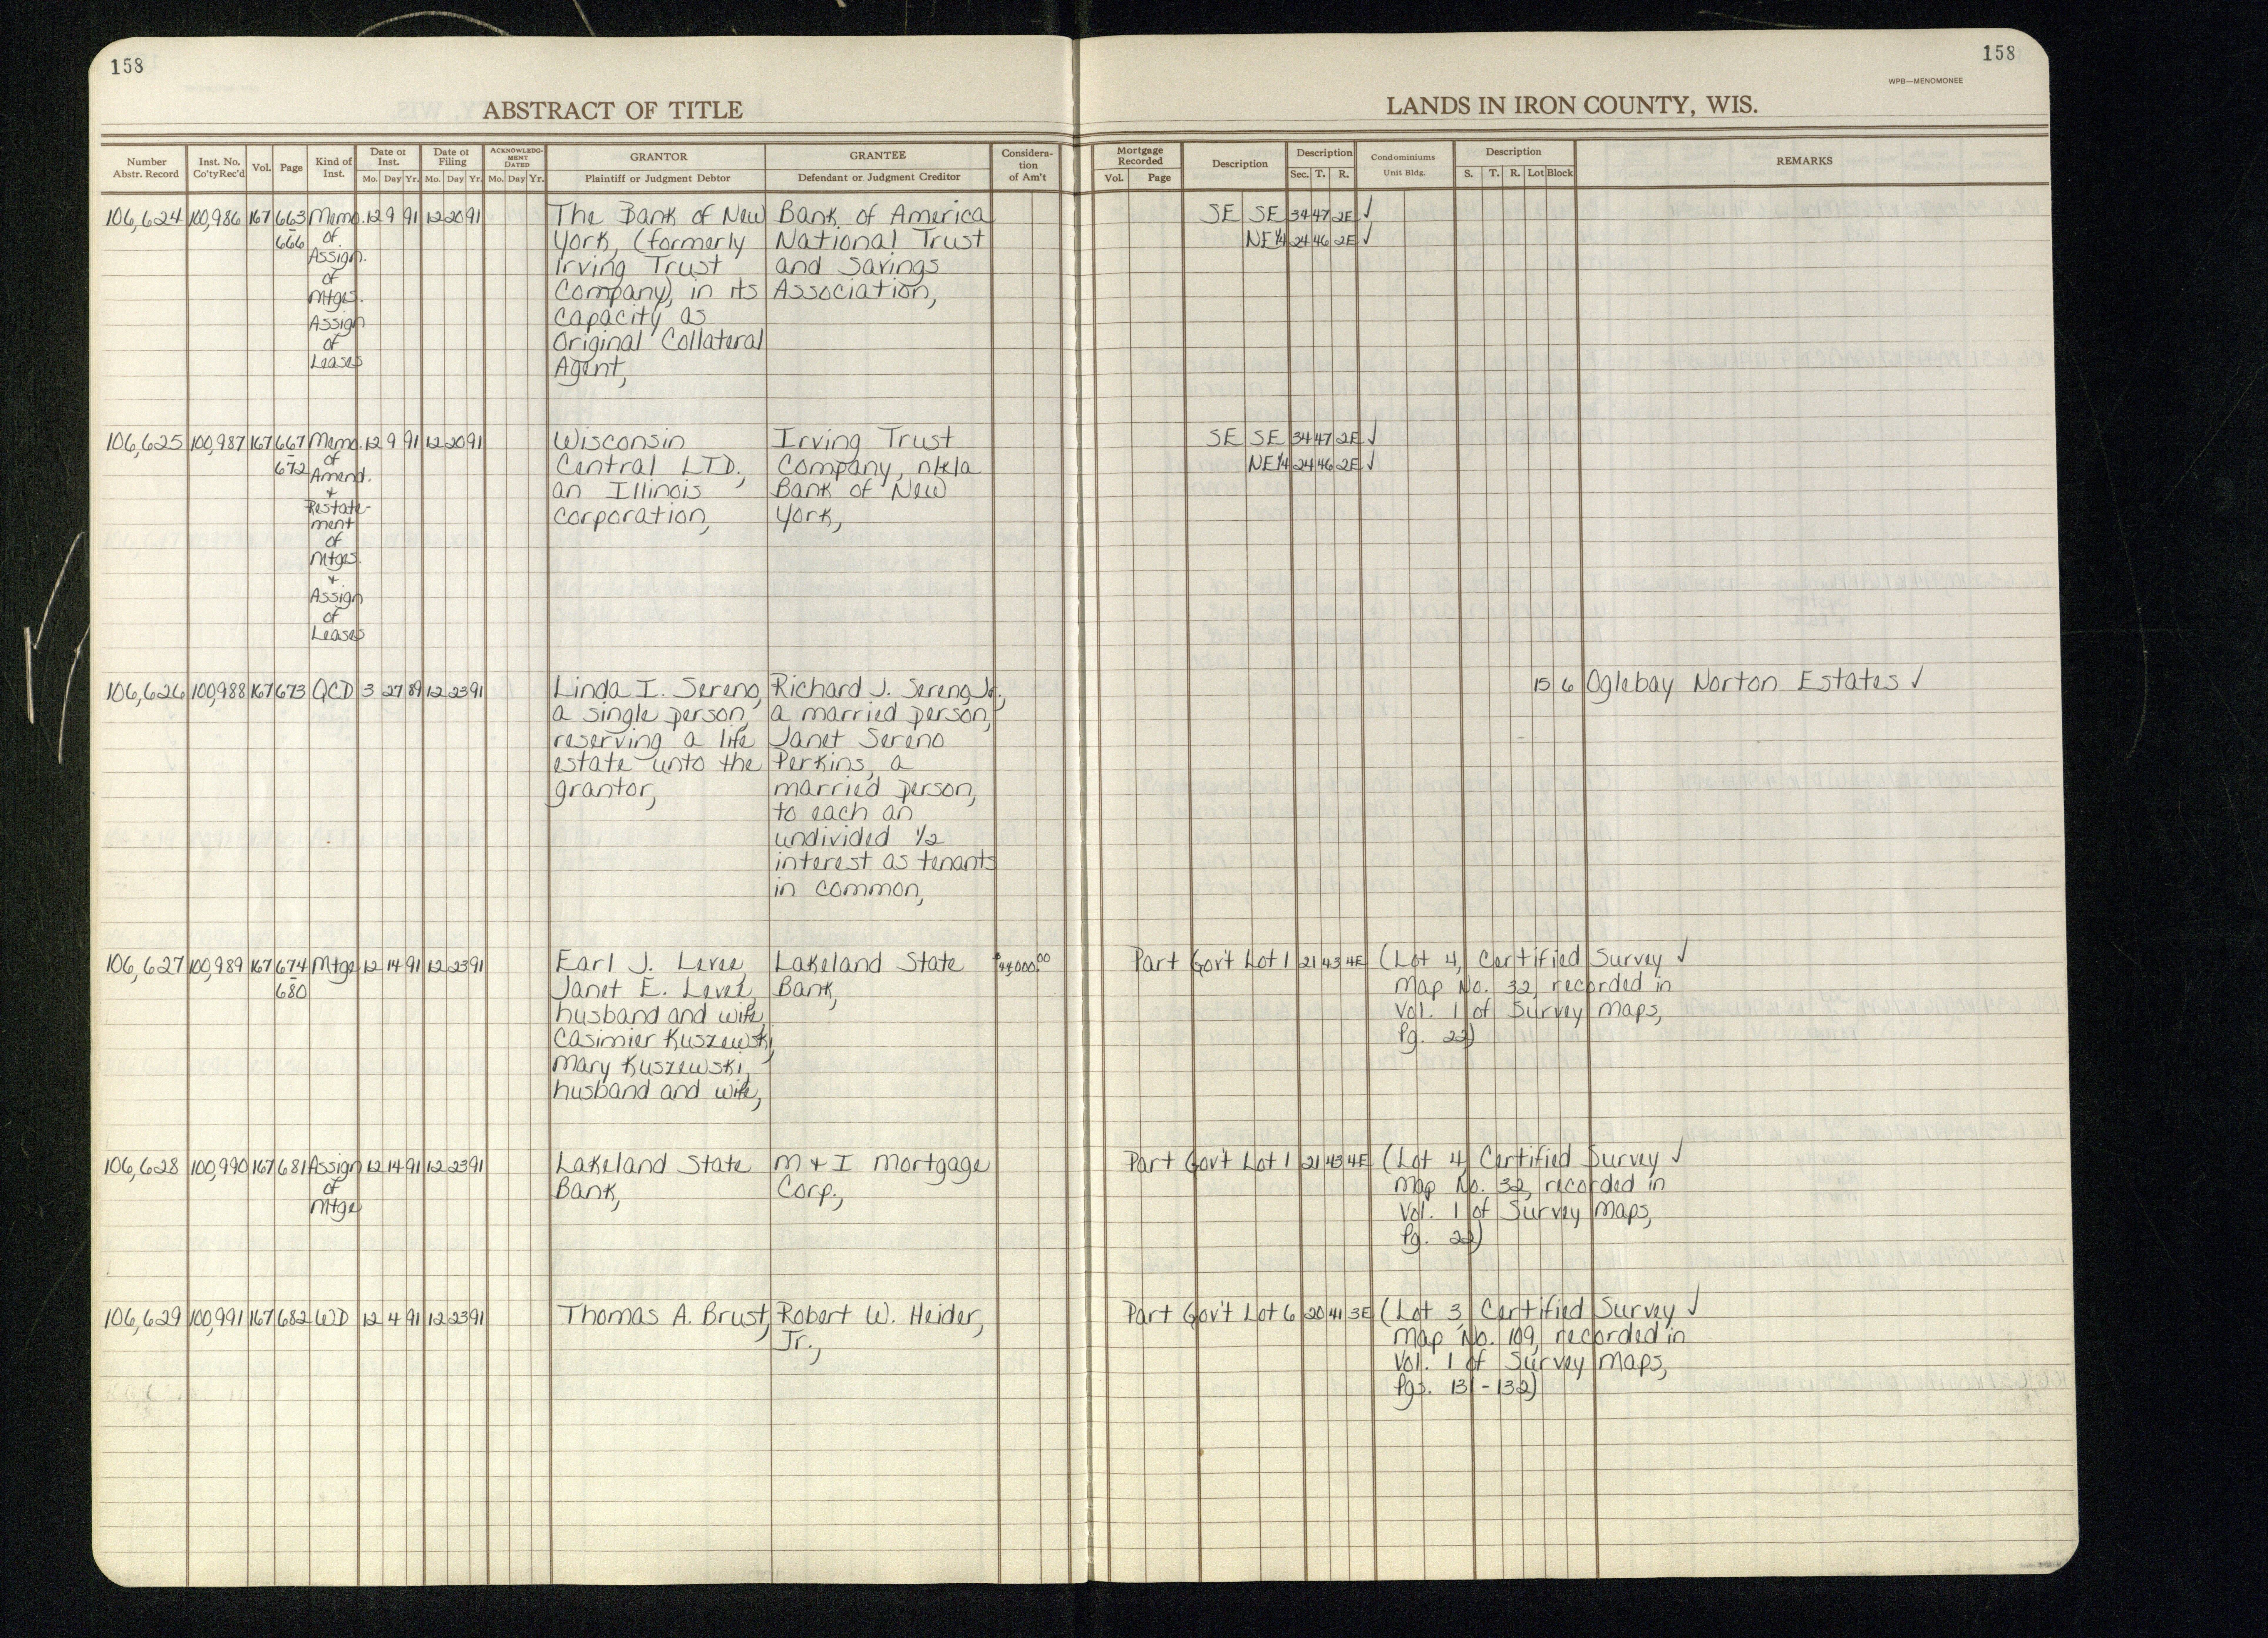 158
158
WPB—MENOMONEE
ABSTRACT OF TITLE
LANDS IN IRON COUNTY, WIS.
Number Abstr. Record Inst. No. Co'ty Rec'd Vol. Page Kind of Inst. Date of Inst. Mo. Day Yr. Date of Filing Mo. Day Yr. ACKNOWLEDGMENT DATED Mo. Day Yr. GRANTOR Plaintiff or Judgment Debtor GRANTEE Defendant or Judgment Creditor Consideration of Am't Mortgage Recorded Vol. Page Description Description Sec. T. R. Condominiums Unit Bldg. Description S. T. R. Lot Block REMARKS
106,624 100,986 167 663 Memo. 12 9 91 12 20 91 The Bank of New Bank of America SE SE 34 47 2E ✓
- 666 of York, (formerly National Trust NE¼ 24 46 2E ✓
Assign. Irving Trust and Savings
of Company), in its Association,
Mtges. Capacity as
Assign Original Collateral
of Agent,
Leases
106,625 100,987 167 667 Memo. 12 9 91 12 20 91 Wisconsin Irving Trust SE SE 34 47 2E ✓
- 672 of Central LTD., Company, n/k/a NE¼ 24 46 2E ✓
Amend. an Illinois Bank of New
+ corporation, York,
Restate-
ment
of
Mtges.
+
Assign
of
Leases
106,626 100,988 167 673 QCD 3 27 89 12 23 91 Linda I. Sereno, Richard J. Sereno, Jr., 15 6 Oglebay Norton Estates ✓
a single person, a married person,
reserving a life Janet Sereno
estate unto the Perkins, a
grantor, married person,
to each an
undivided ½
interest as tenants
in common,
106,627 100,989 167 674 Mtge 12 14 91 12 23 91 Earl J. Lakeland State Part Gov't Lot 1 21 43 4E (Lot 4, Certified Survey ✓
- 680 Janet E. Bank, Map No. 32, recorded in
husband and wife, Vol. 1 of Survey Maps,
Casimier Kuszewski, Pg. 22)
Mary Kuszewski,
husband and wife,
106,628 100,990 167 681 Assign 12 14 91 12 23 91 Lakeland State M + I Mortgage Part Gov't Lot 1 21 43 4E (Lot 4, Certified Survey ✓
of Bank, Corp., Map No. 32, recorded in
Mtge Vol. 1 of Survey Maps,
Pg. 22)
106,629 100,991 167 682 WD 12 4 91 12 23 91 Thomas A. Brust, Robert W. Heider, Part Gov't Lot 6 20 41 3E (Lot 3, Certified Survey ✓
Jr., Map No. 109, recorded in
Vol. 1 of Survey Maps,
Pgs. 131-132)